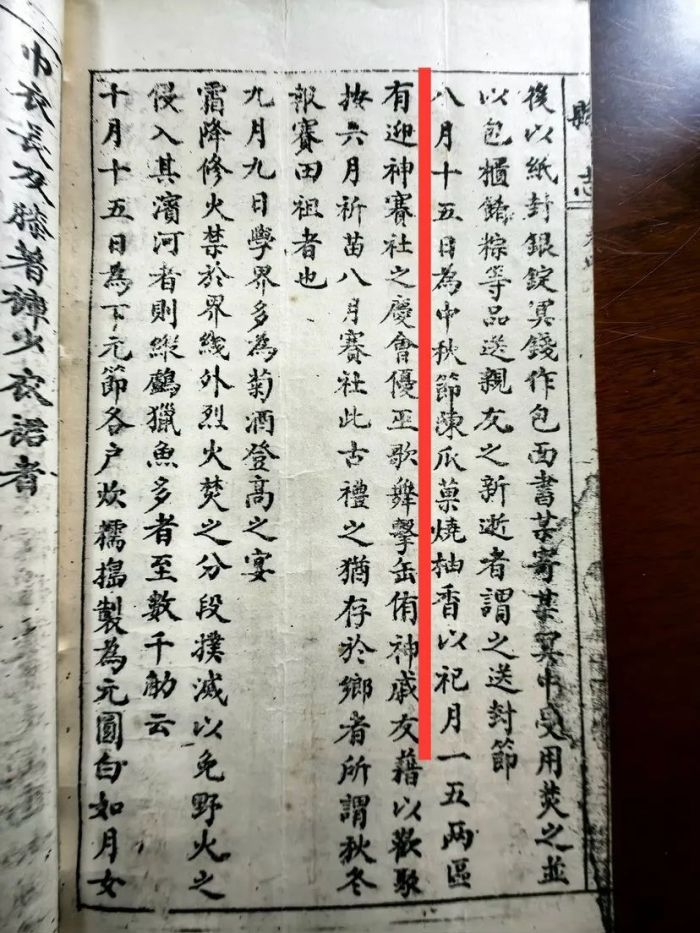 縣志
後以紙封銀錠冥錢作包面書某寄某冥中受用焚之並
以包櫃粽等品送親友之新逝者謂之送封節
八月十五日為中秋節陳瓜菓燒柚香以祀月一五兩區
有迎神賽社之慶會優巫歌舞擊缶侑神戚友藉以歡聚
按六月祈苗八月賽社此古禮之猶存於鄉者所謂秋冬
報賽田祖者也
九月九日學界多為菊酒登高之宴
霜降修火禁於界綫外烈火焚之分段撲滅以免野火之
侵入其濱河者則縱鸕獵魚多者至數千觔云
十月十五日為下元節各户炊糯搗製為元圓白如月女
巾衣長及膝著褲少衣者